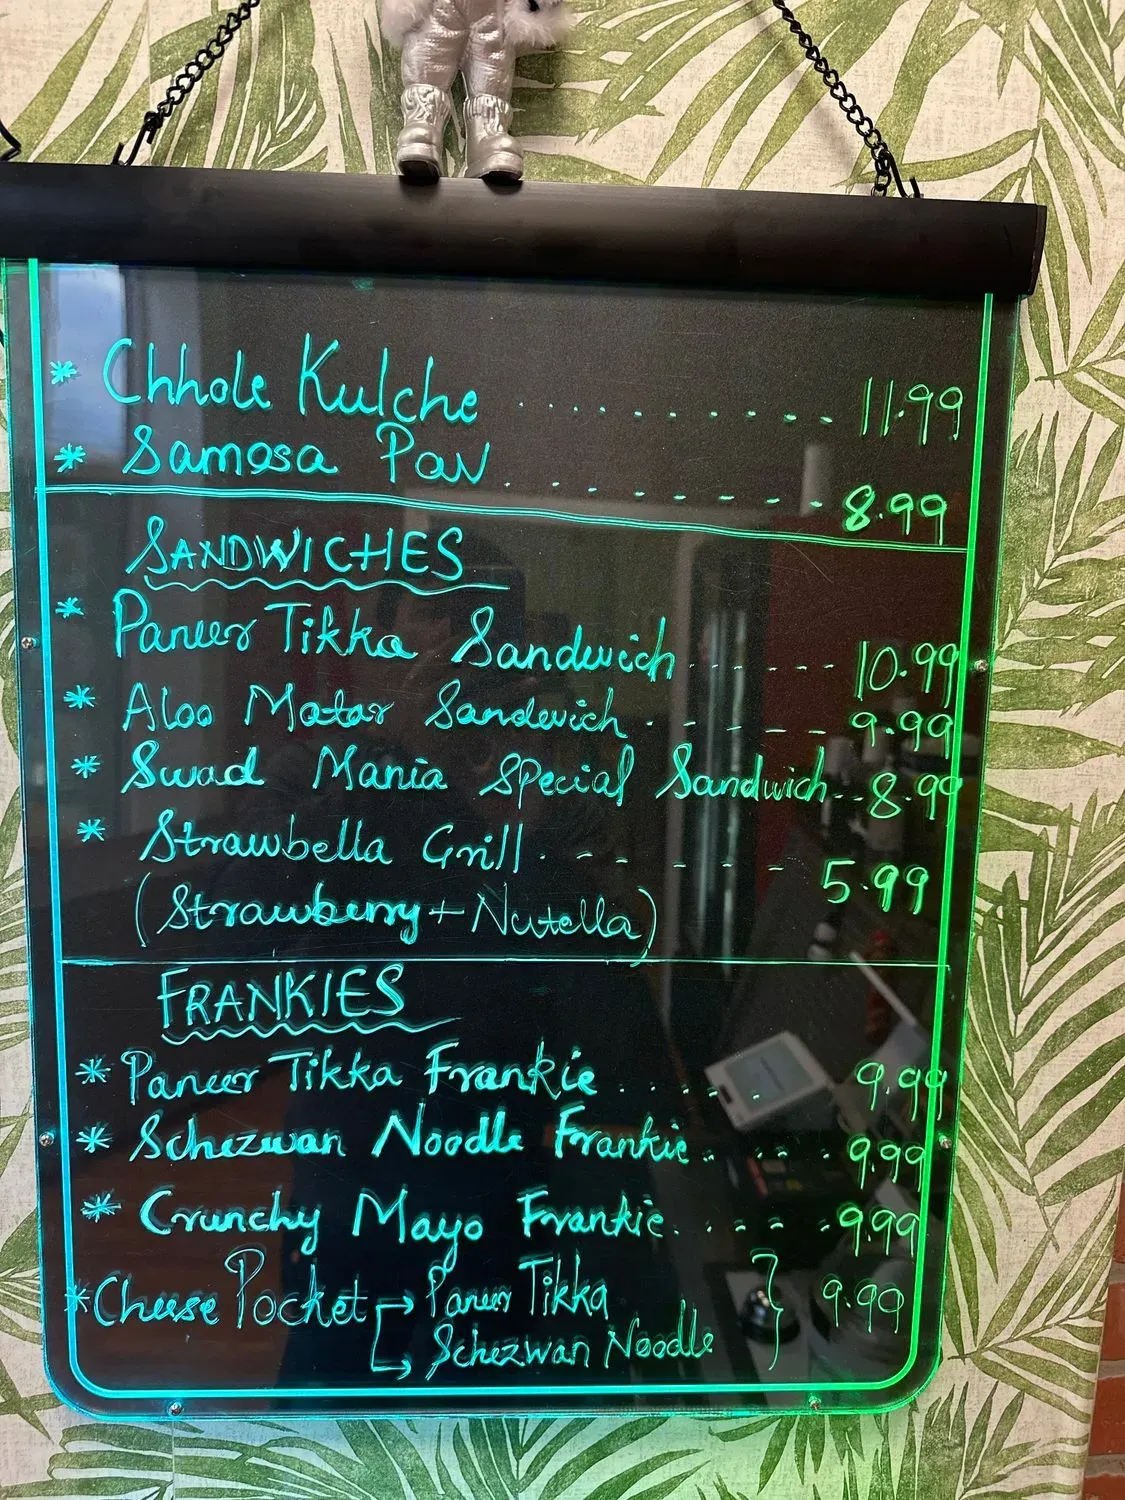 * Chhole Kulche .......... 11.99
* Samosa Pav ........ 8.99
SANDWICHES
* Paneer Tikka Sandwich ...... 10.99
* Aloo Matar Sandwich ..... 9.99
* Swad Mania Special Sandwich .. 8.99
* Strawbella Grill ...... 5.99
(Strawberry + Nutella)
FRANKIES
* Paneer Tikka Frankie ..... 9.99
* Schezwan Noodle Frankie .... 9.99
* Crunchy Mayo Frankie ..... 9.99
* Cheese Pocket → Paneer Tikka } 9.99
→ Schezwan Noodle